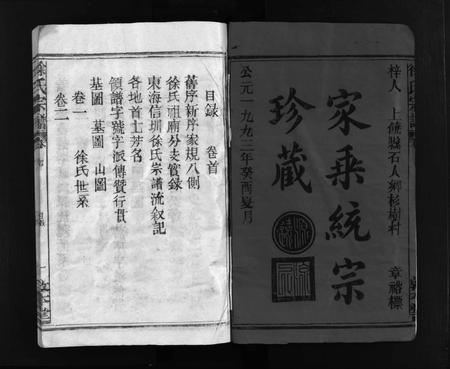 梓人 上饒縣石人鄉杉樹村 章裕標
家乘統宗
珍藏
公元一九九三年癸酉夏月
目錄 卷首
舊序新序家規八則
徐氏祖廟分支實錄
東海信圳徐氏宗譜流叙記
各地首士芳名
領譜字號字派傳贊行實
基圖 墓圖 山圖
卷一 徐氏世系
卷二